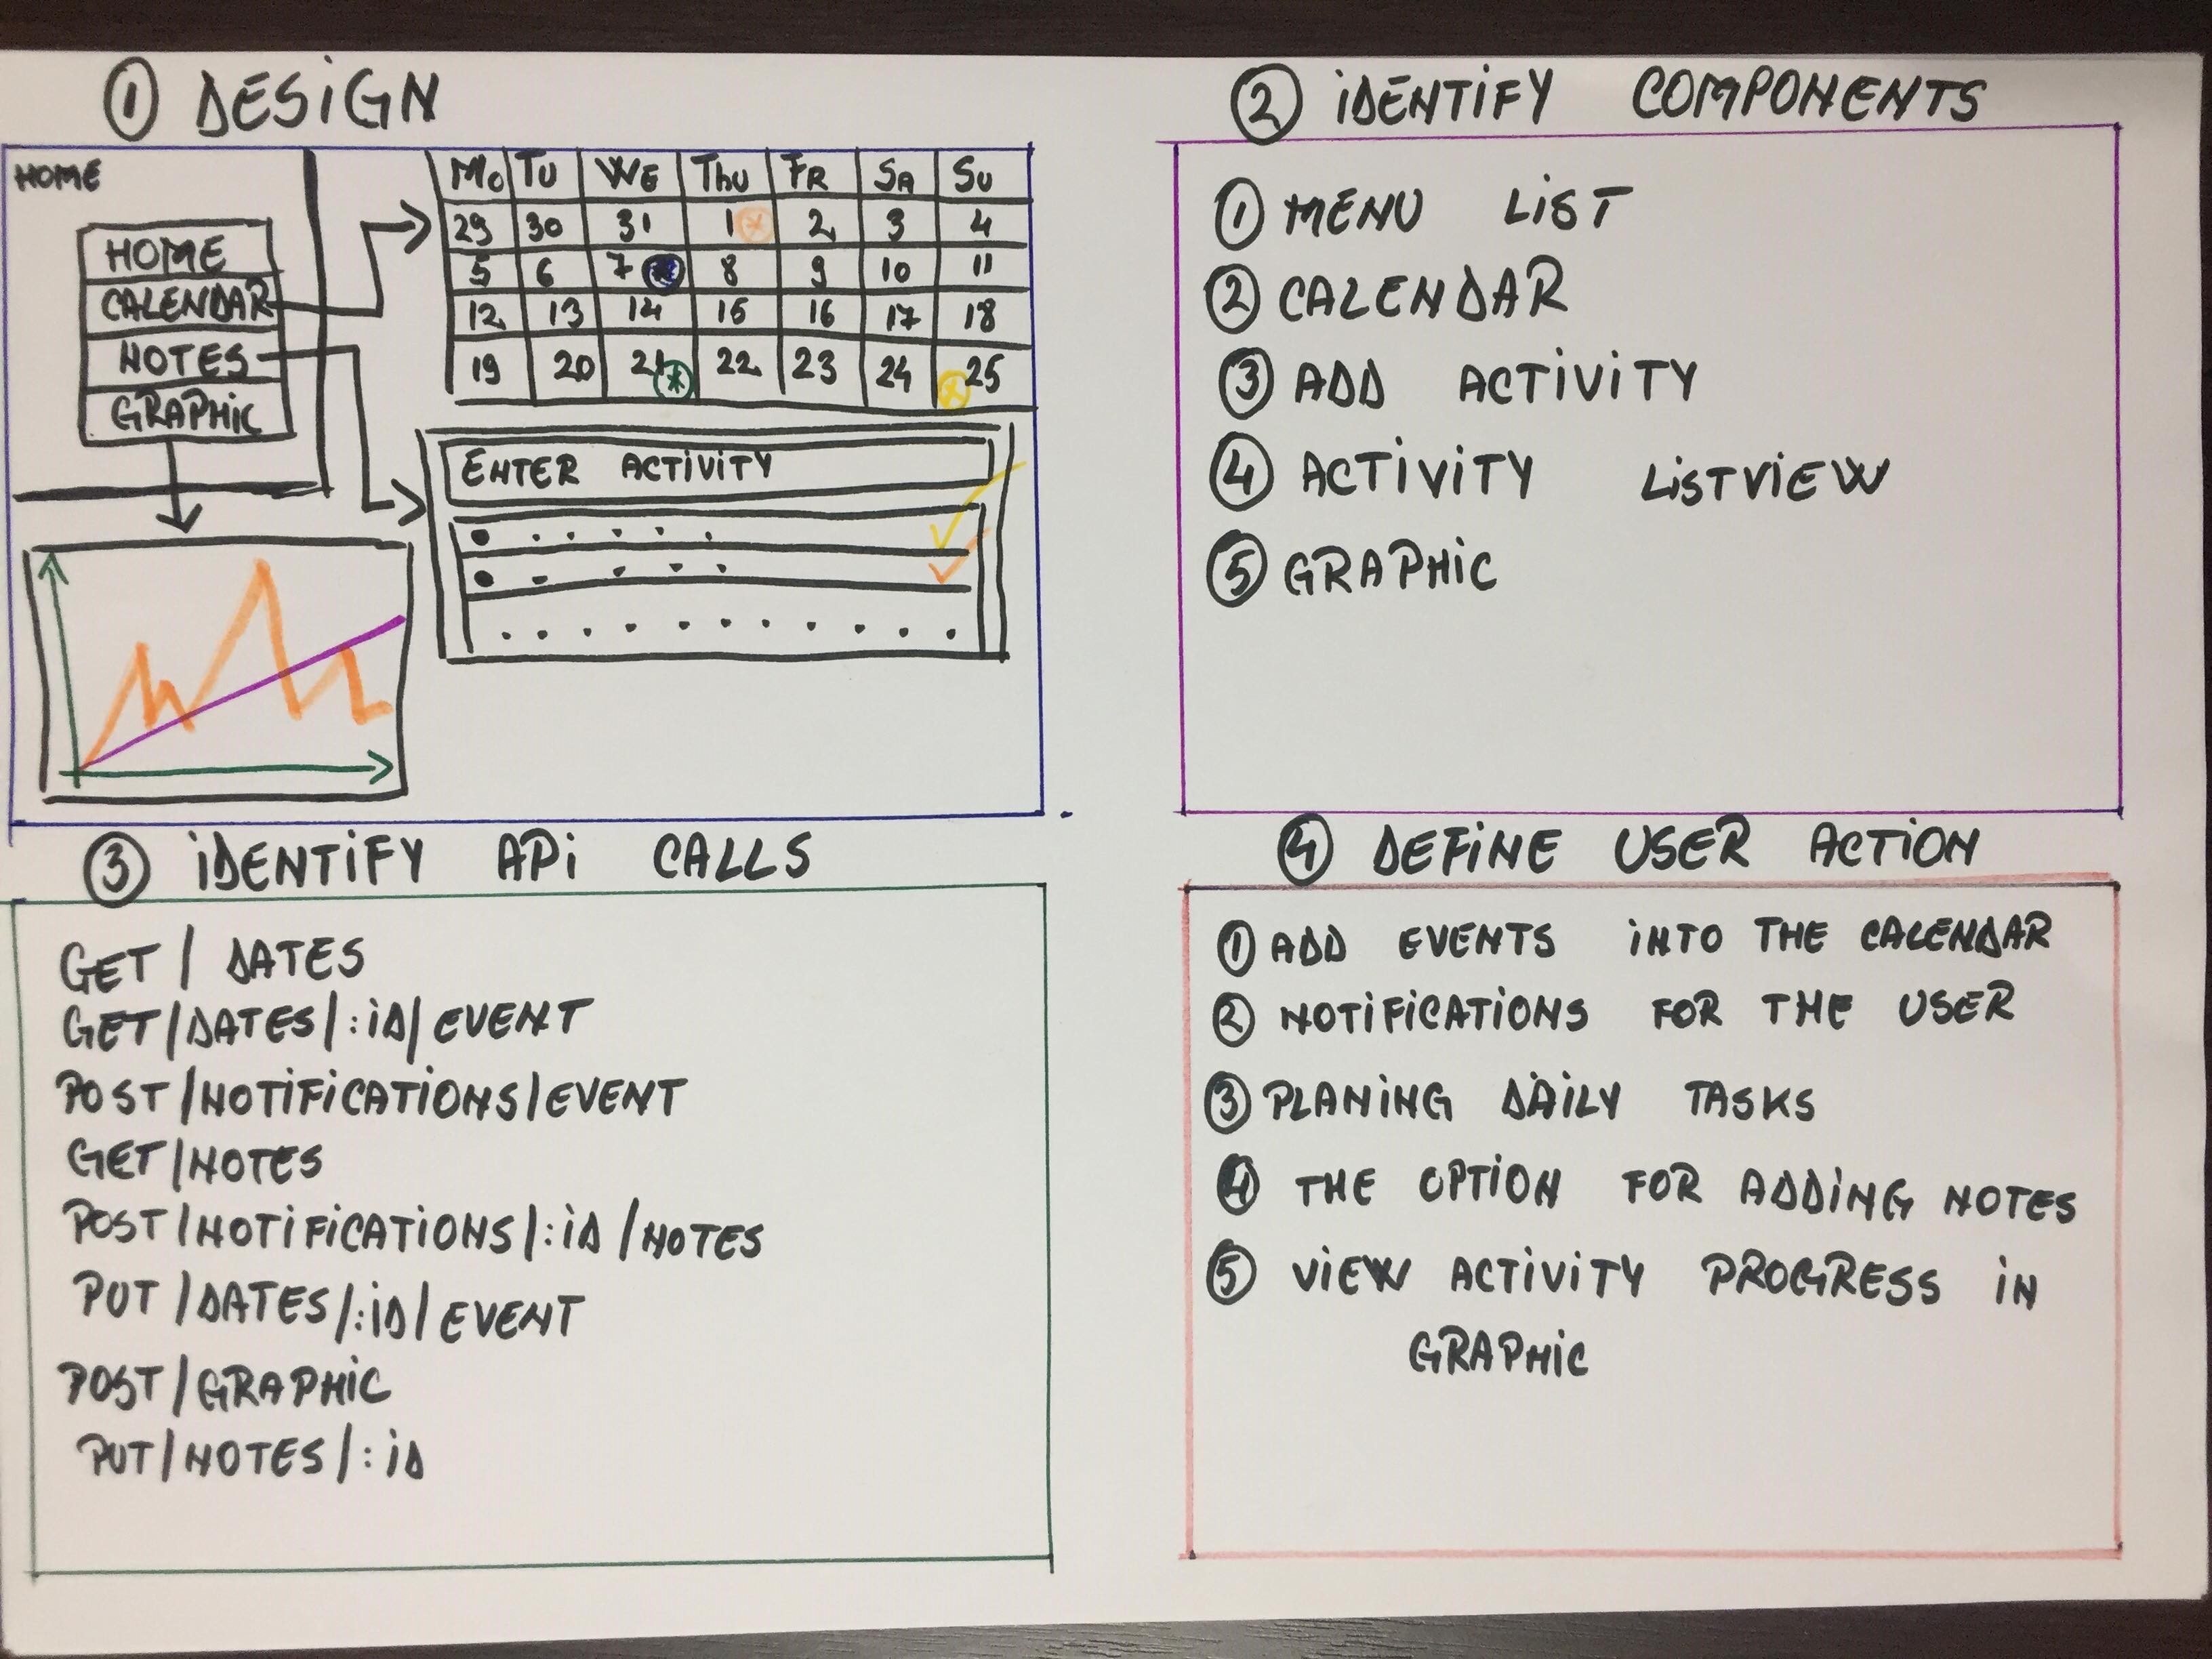 ① DESIGN
HOME
HOME
CALENDAR
NOTES
GRAPHIC
MO TU WE THU FR SA SU
29 30 31 1 2 3 4
5 6 7 8 9 10 11
12 13 14 15 16 17 18
19 20 21 22 23 24 25
ENTER ACTIVITY
② IDENTIFY COMPONENTS
① MENU LIST
② CALENDAR
③ ADD ACTIVITY
④ ACTIVITY LISTVIEW
⑤ GRAPHIC
③ IDENTIFY API CALLS
GET / DATES
GET/DATES/:ID/EVENT
POST/NOTIFICATIONS/EVENT
GET/NOTES
POST/NOTIFICATIONS/:ID/NOTES
PUT/DATES/:ID/EVENT
POST/GRAPHIC
PUT/NOTES/:ID
④ DEFINE USER ACTION
① ADD EVENTS INTO THE CALENDAR
② NOTIFICATIONS FOR THE USER
③ PLANING DAILY TASKS
④ THE OPTION FOR ADDING NOTES
⑤ VIEW ACTIVITY PROGRESS IN
GRAPHIC